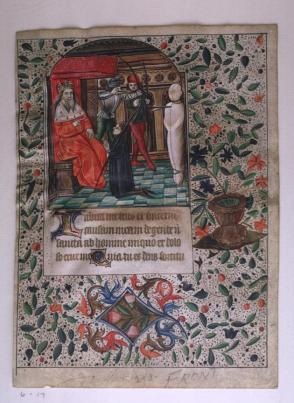 Iudica me deus et discerne
causam meam de gente n
sancta ab homine iniquo et dolo
so erue me Quia tu es deus fortitu
FRONT